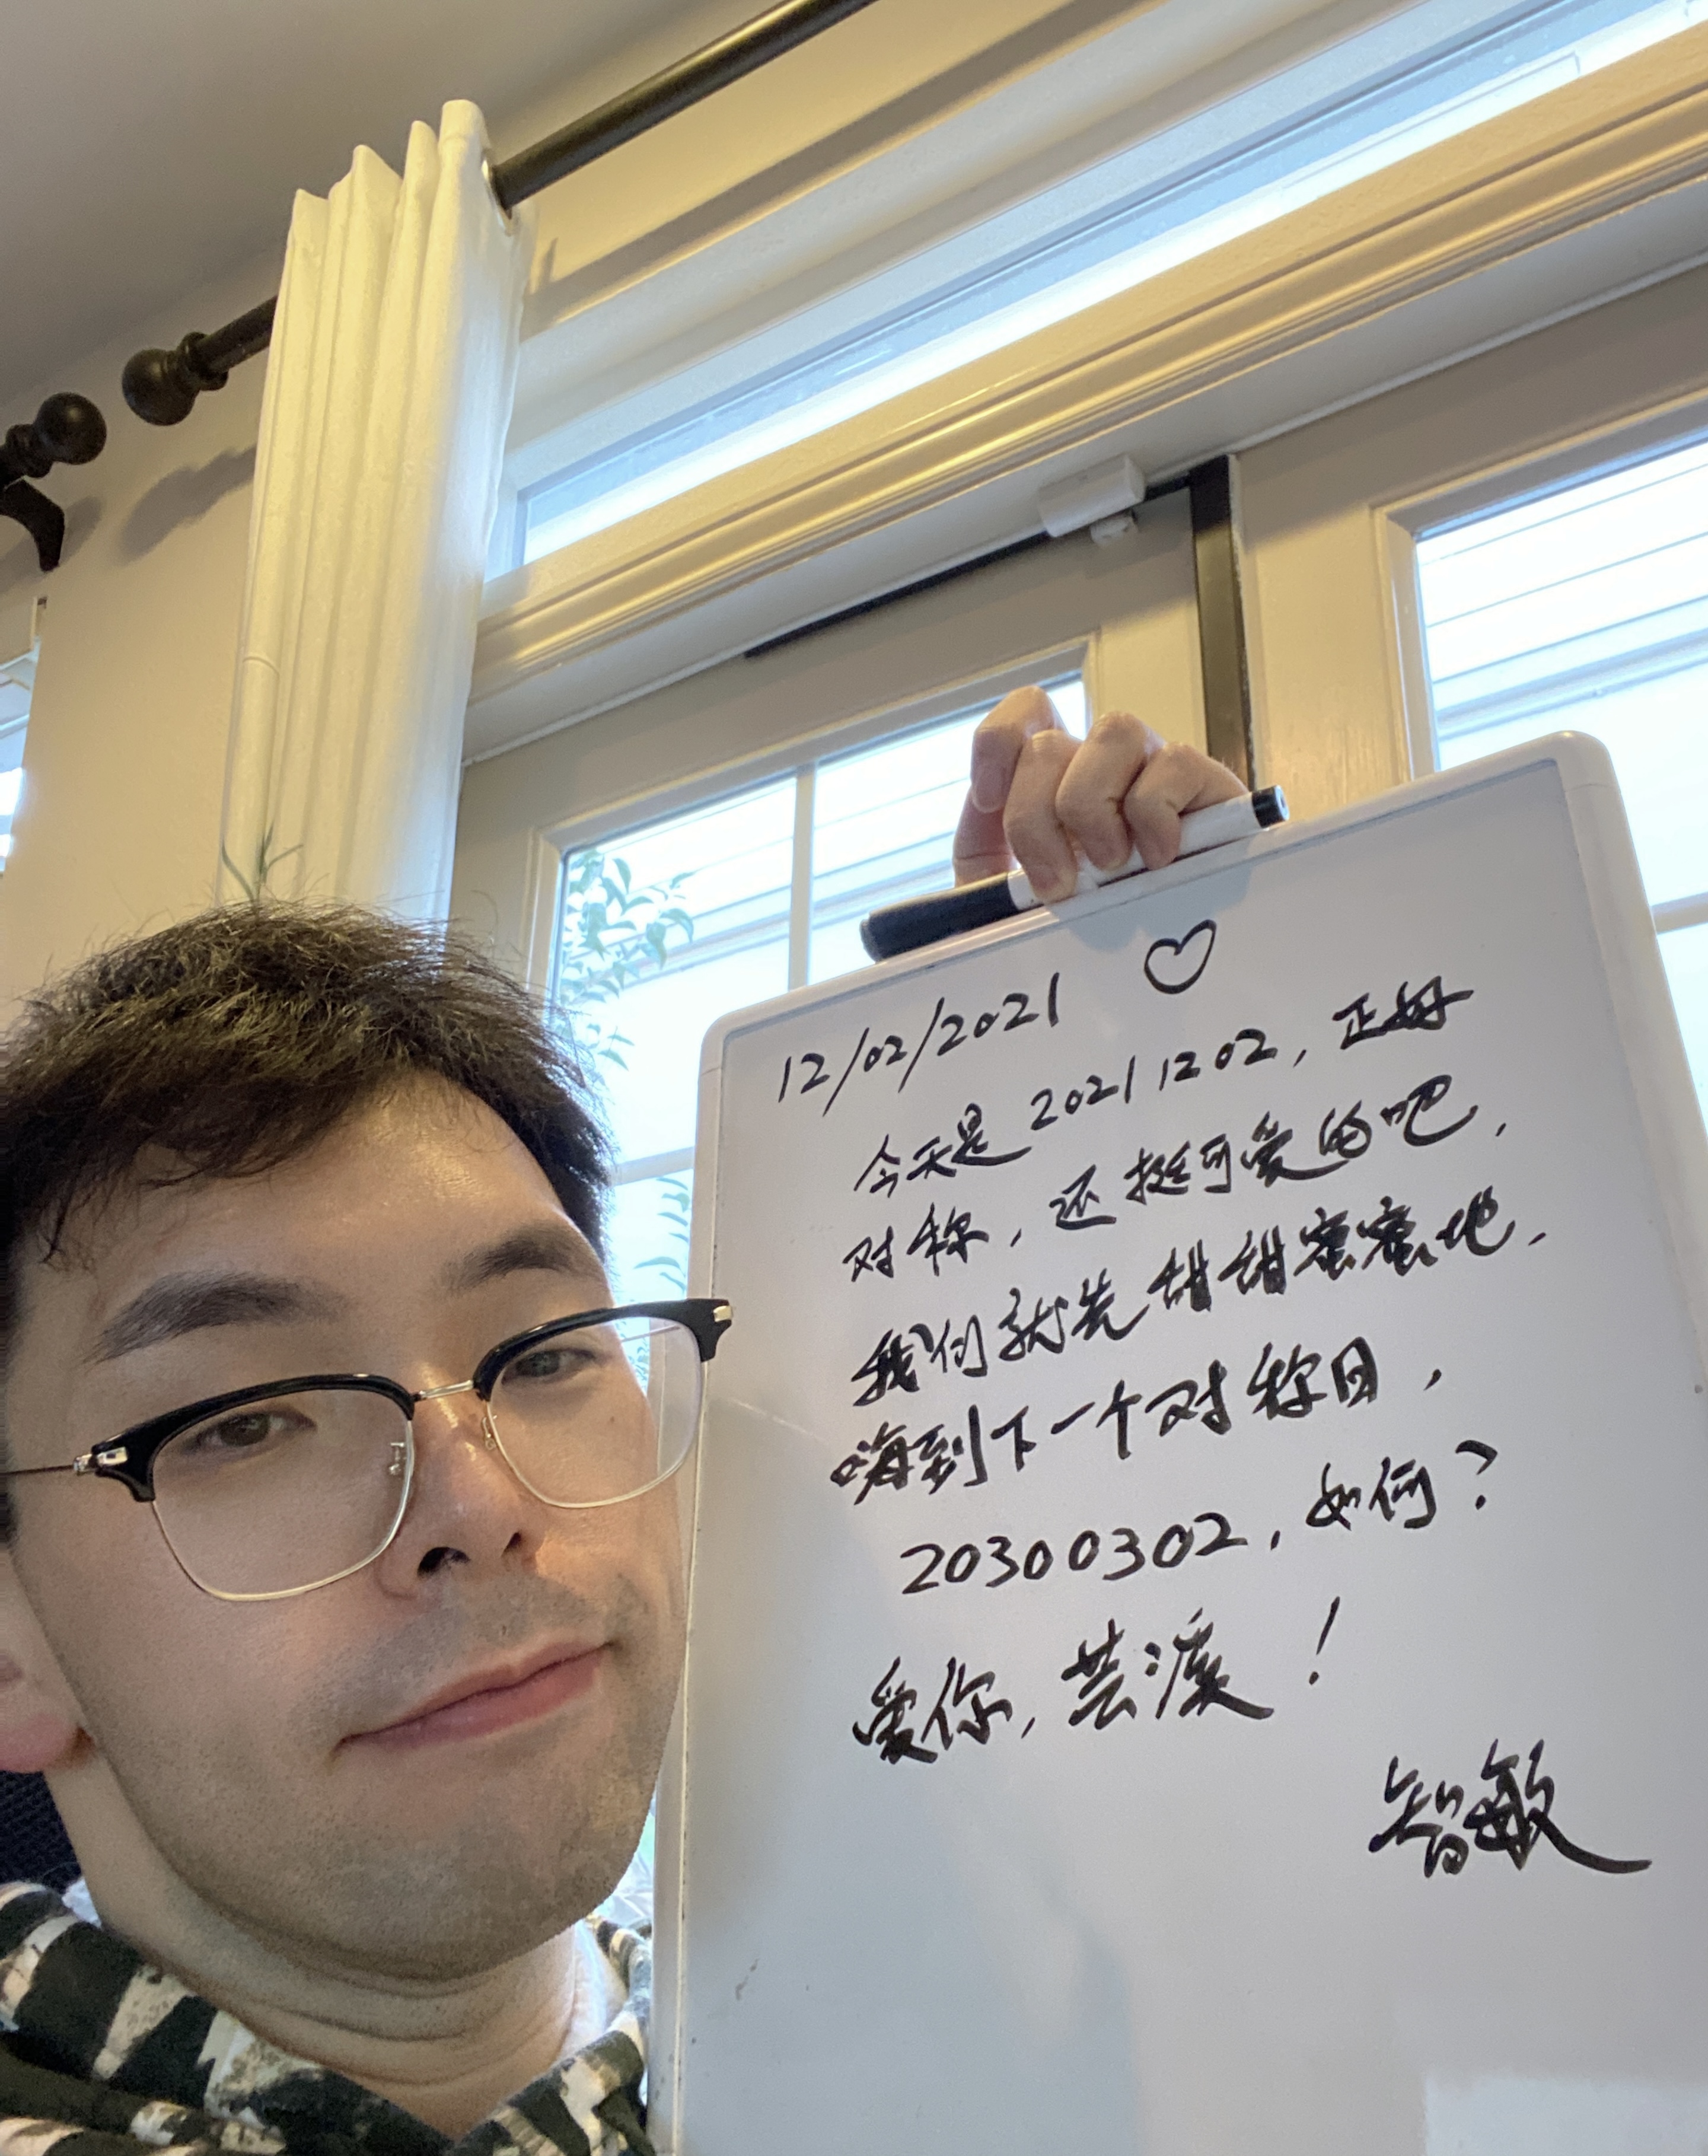 12/02/2021 ♡
今天是20211202，正好
对称，还挺可爱的吧，
我们就先甜甜蜜蜜地，
嗨到下一个对称日，
20300302，如何？
爱你，芸渡！
智敏